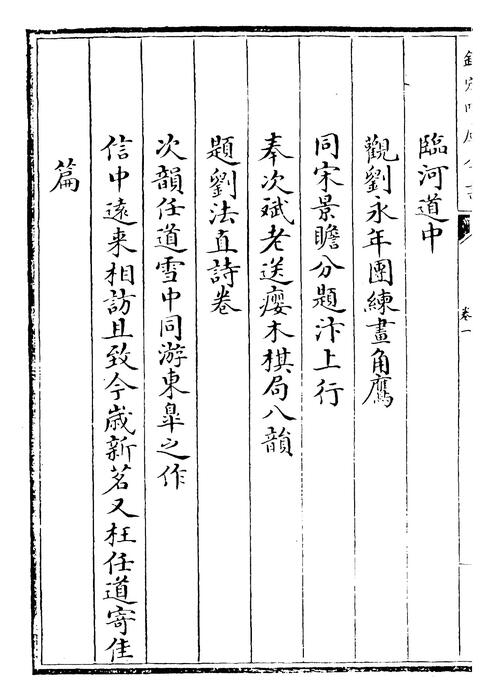 欽定四庫全書
卷一
臨河道中
觀劉永年團練畫角鷹
同宋景瞻分題汴上行
奉次斌老送癭木棋局八韻
題劉法直詩卷
次韻任道雪中同游東臯之作
信中逺来相訪且致今嵗新茗又枉任道寄佳
篇